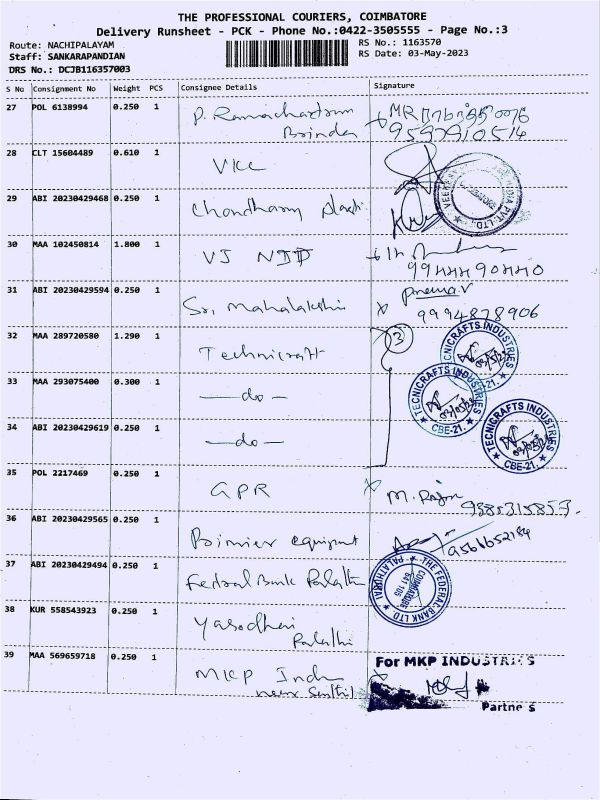 THE PROFESSIONAL COURIERS, COIMBATORE
Delivery Runsheet - PCK - Phone No.:0422-3505555 - Page No.:3
Route: NACHIPALAYAM
RS No.: 1163570
Staff: SANKARAPANDIAN
RS Date: 03-May-2023
DRS No.: DCJB116357003
S No Consignment No Weight PCS Consignee Details Signature
27 POL 6138994 0.250 1 P. Ramachandran
Brinda
28 CLT 15604489 0.610 1 VKC
29 ABI 20230429468 0.250 1 Choudhary Plasti
30 MAA 102450814 1.800 1 VJ
31 ABI 20230429594 0.250 1 Sri Mahalakshmi Prema.V
9994878906
32 MAA 289720580 1.290 1 Technicraft 3
TECNICRAFTS INDUSTRIES CBE-21.
33 MAA 293075400 0.300 1 —do—
TECNICRAFTS INDUSTRIES CBE-21.
34 ABI 20230429619 0.250 1 —do—
TECNICRAFTS INDUSTRIES CBE-21.
35 POL 2217469 0.250 1 GPR M. Rajan
9385315853.
36 ABI 20230429565 0.250 1 equipment
37 ABI 20230429494 0.250 1 Federal Bank Palathu
THE FEDERAL BANK LTD. PALATHURAI
COIMBATORE
641 105
38 KUR 558543923 0.250 1 Yasodhari
Palathi
39 MAA 569659718 0.250 1 MKP Indu
near Senthil
For MKP INDUSTRIES
Partners